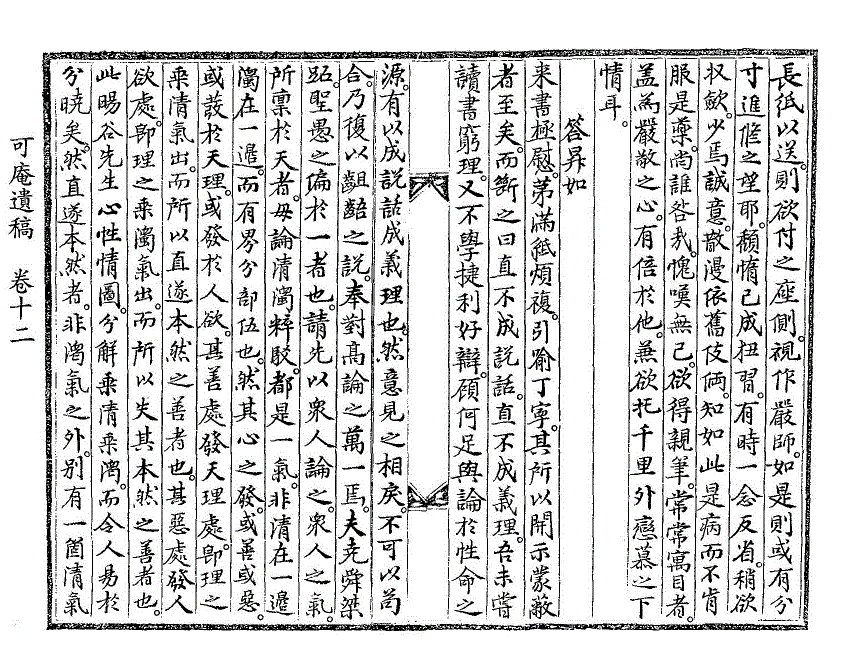 長紙以送則欲付之座側。視作嚴師。如是則或有分
寸進修之望耶。賴惰已成扭習。有時一念反省。稍欲
収斂。少焉誠意散漫依舊伎俩。知如此是病而不肯
服是藥。尚誰咎哉。愧嘆無已。欲得親筆。常常寓目者。
盖為嚴敬之心。有倍於他。兼欲托千里外戀慕之下
情耳。
答昇如
来書極慰。第滿紙煩複。引喻丁寧。其所以開示蒙蔽
者至矣。而斷之曰直不成説話。直不成義理。吾未嘗
讀書窮理。又不學捷利好辯。顧何足與論於性命之
源。有以成説話成義理也。然意見之相戾。不可以苟
合。乃復以齟齬之説。奉對高論之萬一焉。夫堯舜桀
跖。聖愚之偏於一者也。請先以衆人論之。衆人之氣。
所禀於天者。毋論清濁粹駁。都是一氣。非清在一邉
濁在一邉。而有界分部伍也。然其心之發。或善或惡。
或發於天理。或發於人欲。其善處發天理處。卽理之
乘清氣出。而所以直遂本然之善者也。其惡處發人
欲處。卽理之乘濁氣出。而所以失其本然之善者也。
此暘谷先生心性情圖。分解乘清乘濁。而令人易於
分曉矣。然直遂本然者。非濁氣之外。別有一箇清氣
可庵遺稿 卷十二